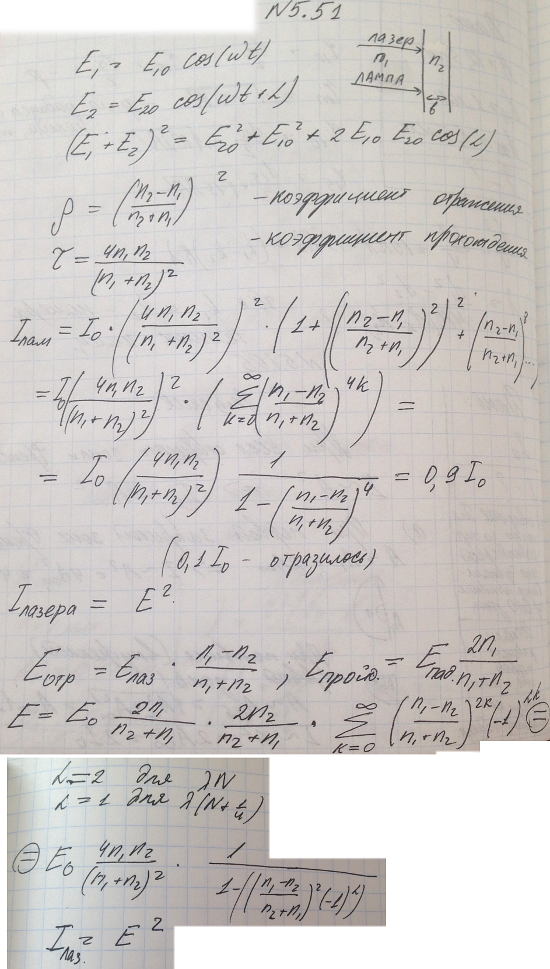 N5.51
E₁ = E₁₀ cos(ωt)
лазер
n₁ n₂
ЛАМПА
b
E₂ = E₂₀ cos(ωt + α)
(E₁ + E₂)² = E₂₀² + E₁₀² + 2 E₁₀ E₂₀ cos(α)
ρ = ((n₂ - n₁)/(n₂ + n₁))² - коэффициент отражения
τ = 4n₁n₂/(n₁ + n₂)² - коэффициент прохождения
Iлам = I₀ · (4n₁n₂/(n₁ + n₂)²)² · (1 + (((n₂ - n₁)/(n₂ + n₁))²)² + ((n₂ - n₁)/(n₂ + n₁)) ...)
= I₀(4n₁n₂/(n₁ + n₂)²)² · (∑ k=0 ∞ ((n₁ - n₂)/(n₁ + n₂))^4k) =
= I₀ (4n₁n₂/(n₁ + n₂)²) 1/(1 - ((n₁ - n₂)/(n₁ + n₂))⁴) = 0,9 I₀
(0,1 I₀ - отразилось)
Iлазера = E².
Eотр = Eлаз · (n₁ - n₂)/(n₁ + n₂) ; Eпройд. = Eпад. 2n₁/(n₁ + n₂)
E = E₀ 2n₁/(n₂ + n₁) · 2n₂/(n₂ + n₁) · ∑ k=0 ∞ ((n₁ - n₂)/(n₁ + n₂))^2k (-1)^αk ⊜
α = 2 для λN
α = 1 для λ(N + 1/4)
⊜ E₀ 4n₁n₂/(n₁ + n₂)² · 1/(1 - (((n₁ - n₂)/(n₂ + n₁))² (-1)^α))
Iлаз. = E²